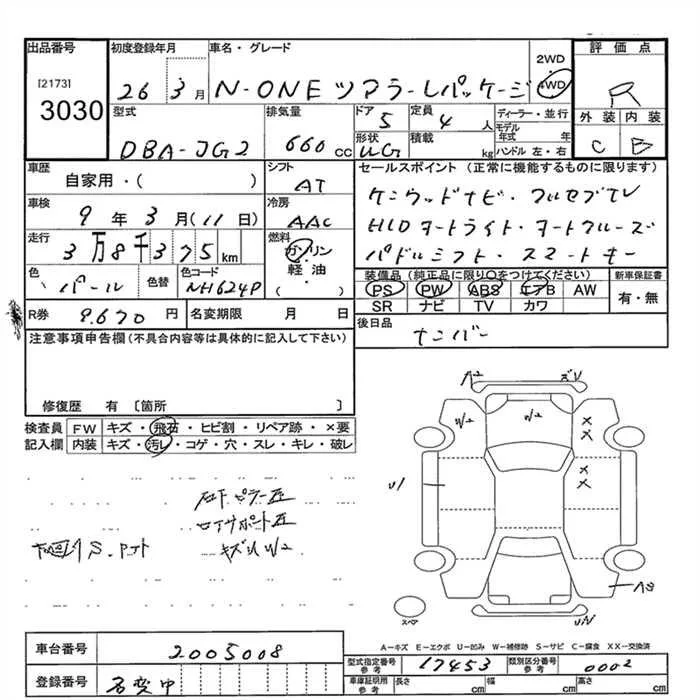 出品番号 初度登録年月 車名・グレード 2WD 4WD 評価点
[2173]
3030
26 3月 N-ONE ツアラーLパッケージ R
型式 排気量 ドア 定員 ディーラー・並行 外装 内装
DBA-JG2 660cc 5 4人 モデル年式 年 C B
形状 積載 ハンドル 左・右
UG kg
車歴 シフト セールスポイント (正常に機能するものに限ります)
自家用・( ) AT ケンウッドナビ・フルセグTV
車検 冷房
9年3月(11日) AAC HIDオートライト・オートクルーズ
走行 燃料
3万8千375km ガソリン パドルシフト・スマートキー
軽油
( )
色 色替 色コード 装備品 (純正品に限り○をつけてください) 新車保証書
パール NH624P PS PW ABS エアB AW 有・無
SR ナビ TV カワ
R券 9.670円 名変期限 月 日 後日品
ナンバー
注意事項申告欄 (不具合内容等は具体的に記入して下さい)
修復歴 有 〔箇所 〕
検査員 FW キズ・飛石・ヒビ割・リペア跡・×要
記入欄 内装 キズ・汚レ・コゲ・穴・スレ・キレ・破レ
A2
W2
W2
U1
キズU W2
スペア
A-キズ E-エクボ U-凹み W-補修跡 S-サビ C-腐食 XX-交換済
車台番号 2005008
型式指定番号 参考 17453 類別区分番号 参考 0002
登録番号 名変中
車庫証明用 参考 長さ cm 幅 cm 高さ cm